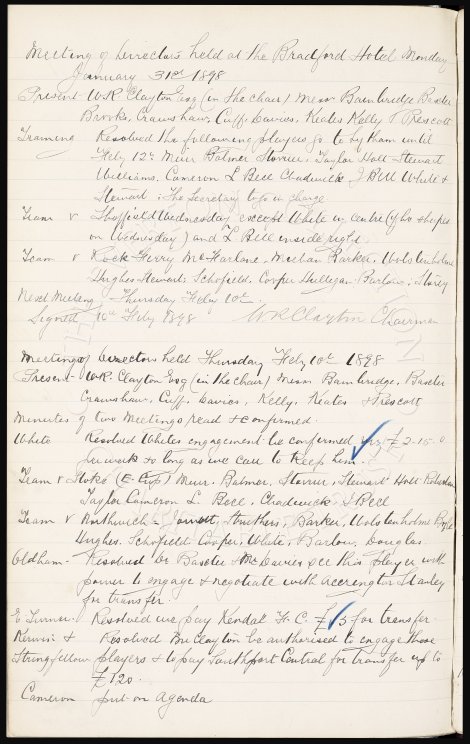 Meeting of Directors held at the Bradford Hotel Monday
January 31st 1898
Present W.R. Clayton Esq (in the chair) Messrs Bainbridge Baxter
Brooks, Crawshaw, Cuff, Davies, Keates Kelly & Prescott
Training Resolved the following players go to Lytham until
Feby 12th Muir Balmer Storrier. Taylor Holt Stewart
Williams. Cameron L Bell Chadwick J Bell White &
Stewart. The Secretary to go in charge
Team v Sheffield Wednesday except White in centre (if he shapes
on Wednesday) and L Bell inside right
Team v Rock Ferry McFarlane. Meehan Barker. Wolstenholme
Hughes Stewart. Schofield. Cooper Hulligan Barlow. Storey
Next Meeting Thursday Feby 10th.
Signed 10th Feby 1898 W R Clayton Chairman
Meeting of Directors held Thursday Feby 10th 1898
Present W.R. Clayton Esq (in the chair) Messrs Bainbridge, Baxter
Crawshaw, Cuff. Davies, Kelly. Keates & Prescott
Minutes of two Meetings read & confirmed.
White Resolved Whites engagement be confirmed £2-15-0
per week so long as we care to keep him.
Team v Stoke (E. Cup) Muir. Balmer, Storrier, Stewart Holt Robertson
Taylor Cameron L. Bell, Chadwick J Bell
Team v Northwich Barker, Wolstenholme
Hughes. Schofield Cooper, White, Barlow, Douglas.
Oldham. Resolved Dr Baxter & Mr Davies see this player with
power to engage & negotiate with Accrington Stanley
for transfer.
E Turner. Resolved we pay Kendal F.C. £15 for transfer.
Kerwin & Resolved Mr Clayton be authorised to engage these
Stringfellow players & to pay Southport Central for transfer up to
£120.
Cameron put on agenda